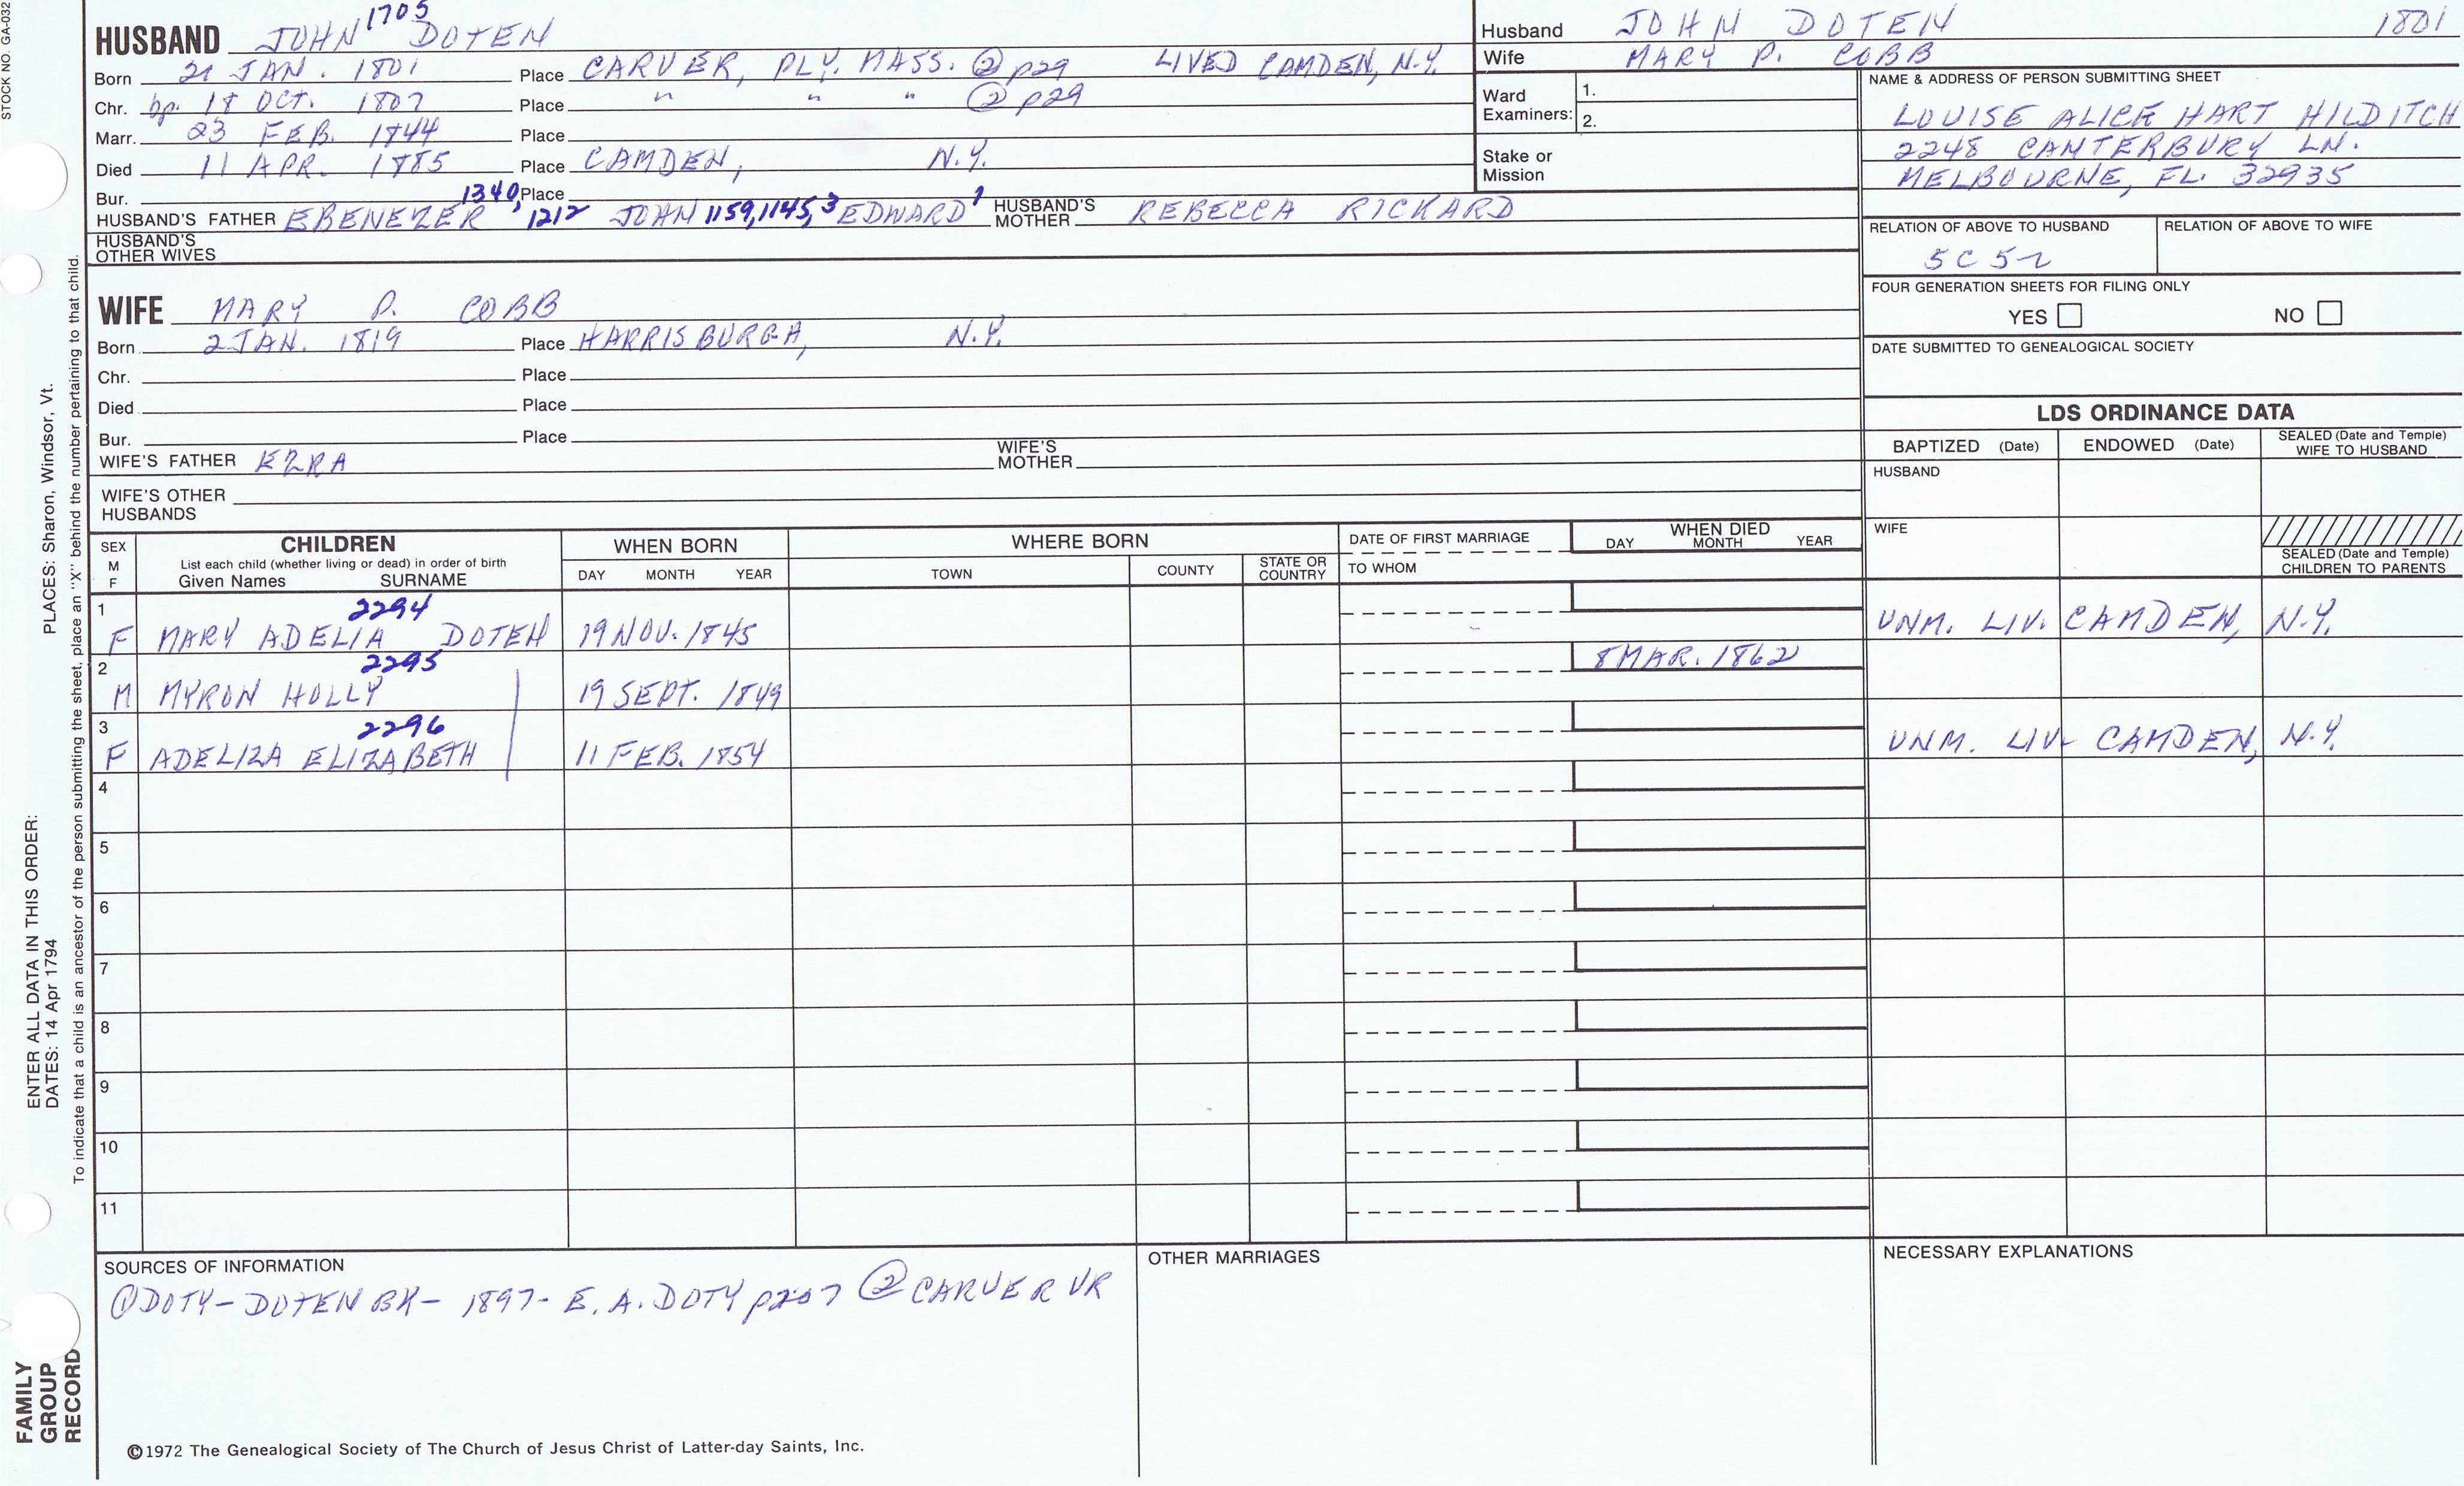 STOCK NO. GA-032
HUSBAND JOHN 1705 DOTEN
Born 21 JAN. 1801 Place CARVER, PLY. MASS. ② p29 LIVED CAMDEN, N.Y.
Chr. bp. 18 OCT. 1807 Place " " " ② p29
Marr. 23 FEB. 1844 Place
Died 11 APR. 1885 Place CAMDEN, N.Y.
Bur. Place
HUSBAND'S FATHER EBENEZER 1340, 1212 JOHN 1159, 1145, 3 EDWARD 1 HUSBAND'S MOTHER REBECCA RICKARD
HUSBAND'S OTHER WIVES
WIFE MARY P. COBB
Born 2 JAN. 1819 Place HARRISBURGH, N.Y.
Chr. Place
Died Place
Bur. Place
WIFE'S FATHER EZRA WIFE'S MOTHER
WIFE'S OTHER HUSBANDS
Husband JOHN DOTEN 1801
Wife MARY P. COBB
Ward Examiners: 1.
2.
Stake or Mission
NAME & ADDRESS OF PERSON SUBMITTING SHEET
LOUISE ALICE HART HILDITCH
2248 CANTERBURY LN.
MELBOURNE, FL. 32935
RELATION OF ABOVE TO HUSBAND RELATION OF ABOVE TO WIFE
5C 5r
FOUR GENERATION SHEETS FOR FILING ONLY
YES NO
DATE SUBMITTED TO GENEALOGICAL SOCIETY
LDS ORDINANCE DATA
BAPTIZED (Date) ENDOWED (Date) SEALED (Date and Temple) WIFE TO HUSBAND
HUSBAND
WIFE
SEALED (Date and Temple) CHILDREN TO PARENTS
SEX M F
CHILDREN
List each child (whether living or dead) in order of birth
Given Names SURNAME
WHEN BORN
DAY MONTH YEAR
WHERE BORN
TOWN COUNTY STATE OR COUNTRY
DATE OF FIRST MARRIAGE
TO WHOM
WHEN DIED
DAY MONTH YEAR
1 2294
F MARY ADELIA DOTEN 19 NOV. 1845 UNM. LIV. CAMDEN, N.Y.
2 2295 8 MAR. 1862
M MYRON HOLLY 19 SEPT. 1849
3 2296
F ADELIZA ELIZABETH 11 FEB. 1854 UNM. LIV. CAMDEN, N.Y.
4
5
6
7
8
9
10
11
SOURCES OF INFORMATION
① DOTY - DOTEN BK - 1897 - E. A. DOTY p207 ② CARVER VR
OTHER MARRIAGES
NECESSARY EXPLANATIONS
©1972 The Genealogical Society of The Church of Jesus Christ of Latter-day Saints, Inc.
FAMILY
GROUP
RECORD
ENTER ALL DATA IN THIS ORDER:
DATES: 14 Apr 1794
PLACES: Sharon, Windsor, Vt.
To indicate that a child is an ancestor of the person submitting the sheet, place an "X" behind the number pertaining to that child.